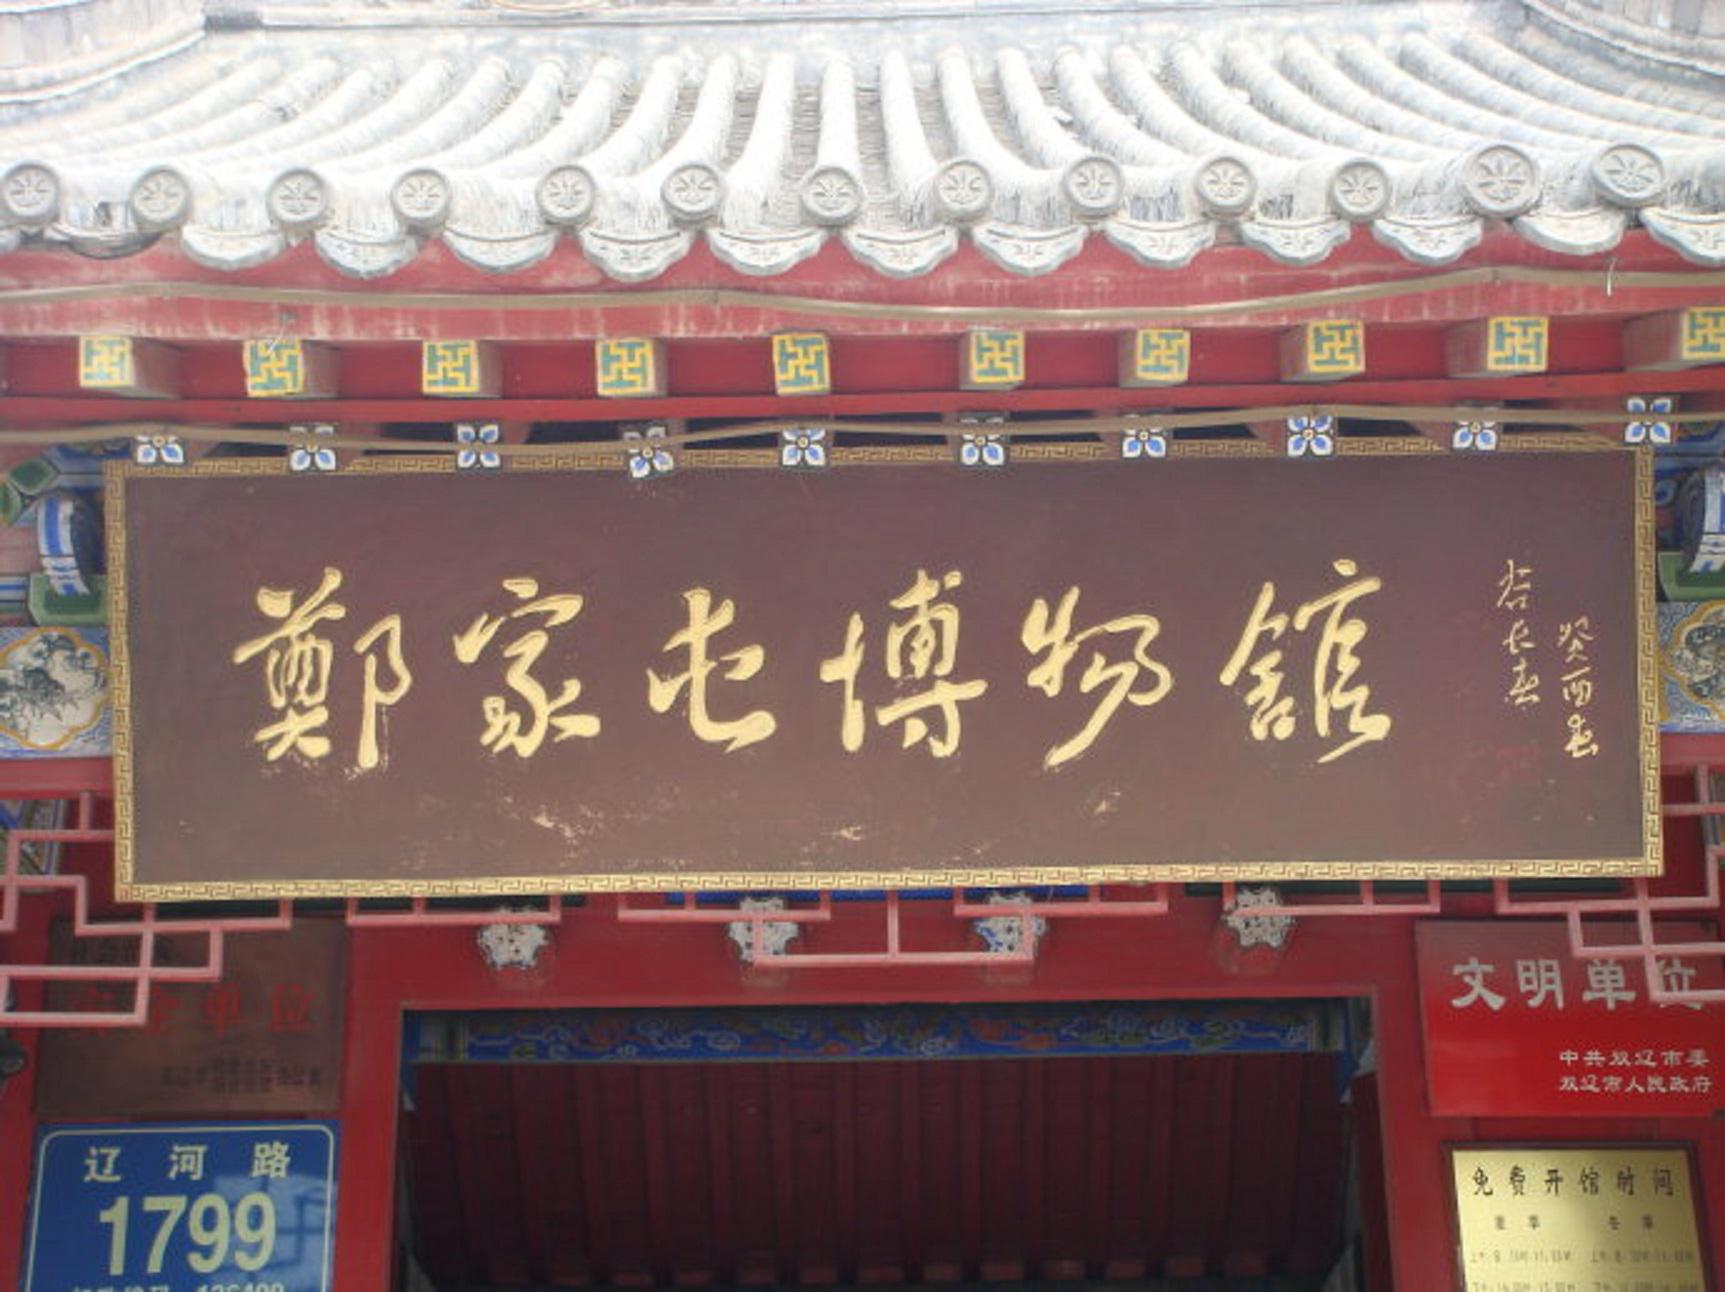 鄭家屯博物館
癸酉春
谷长春
安全单位
文明单位
中共双辽市委
双辽市人民政府
辽河路
1799
免费开馆时间
夏季 冬季